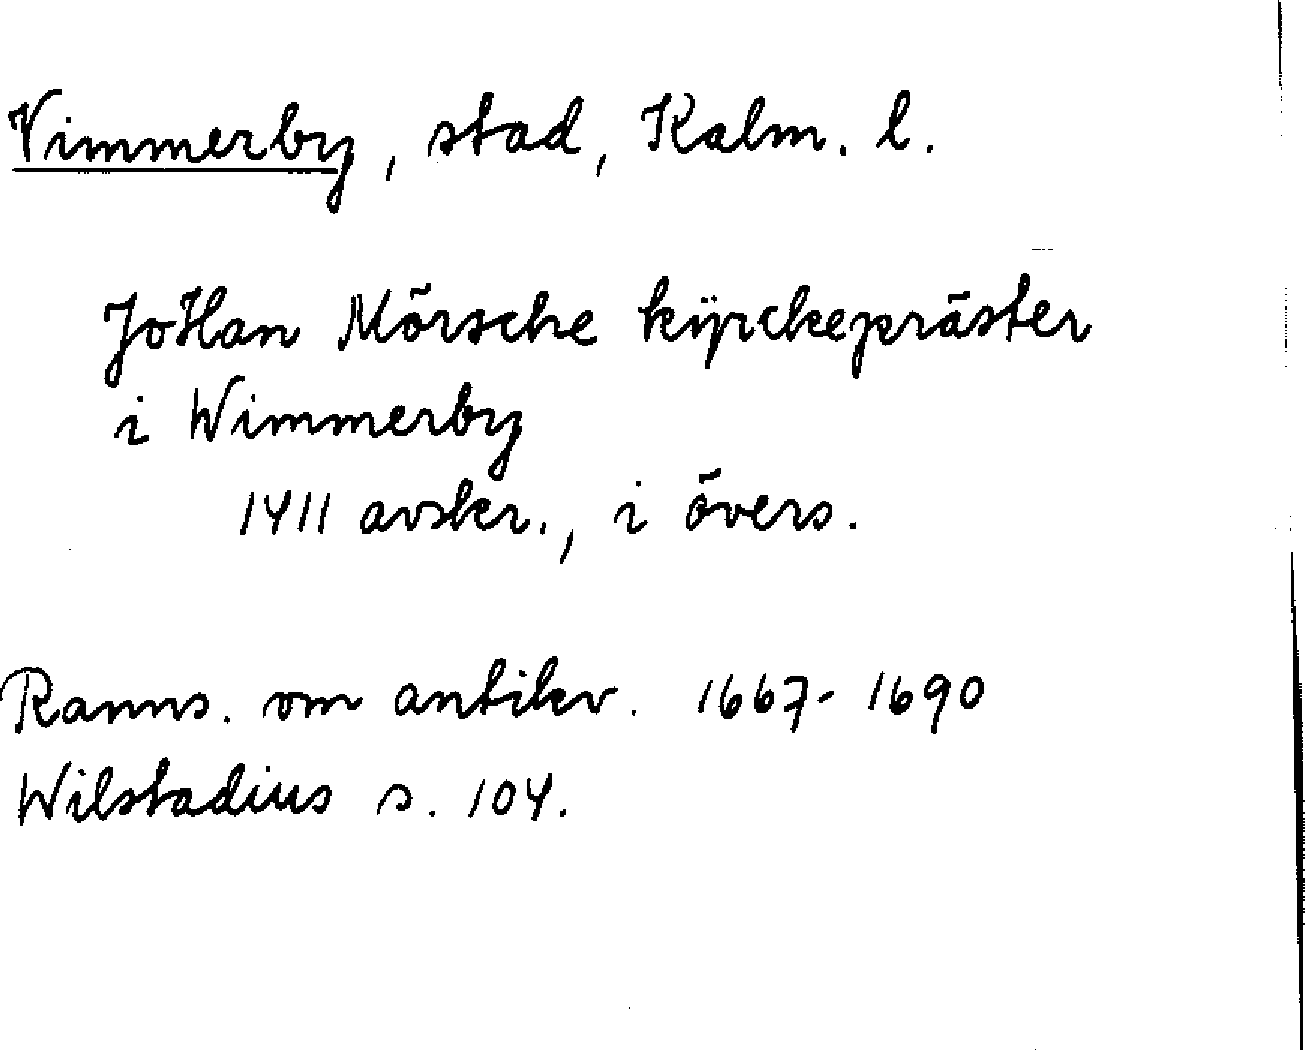 Vimmerby, stad, Kalm. l.
JoHan Mörsche kÿrckepräster
i Wimmerby
1411 avskr., i övers.
Ranns. om antikv. 1667-1690
Wilstadius s. 104.